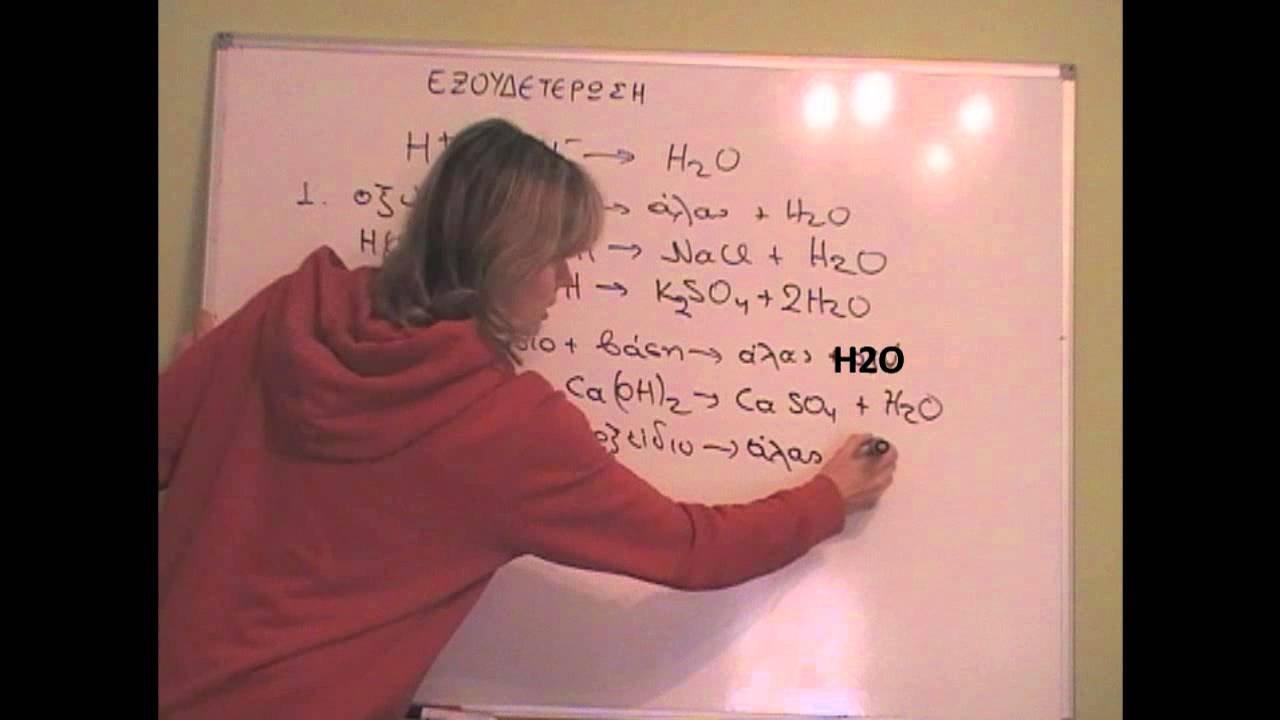 ΕΞΟΥΔΕΤΕΡΩΣΗ
H⁺ ⁻ → H₂O
1. οξ → άλας + H₂O
H → NaCl + H₂O
H → K₂SO₄ + 2H₂O
+ βάση → άλας + H2O
Ca(OH)₂ → CaSO₄ + H₂O
οξείδιο → άλας